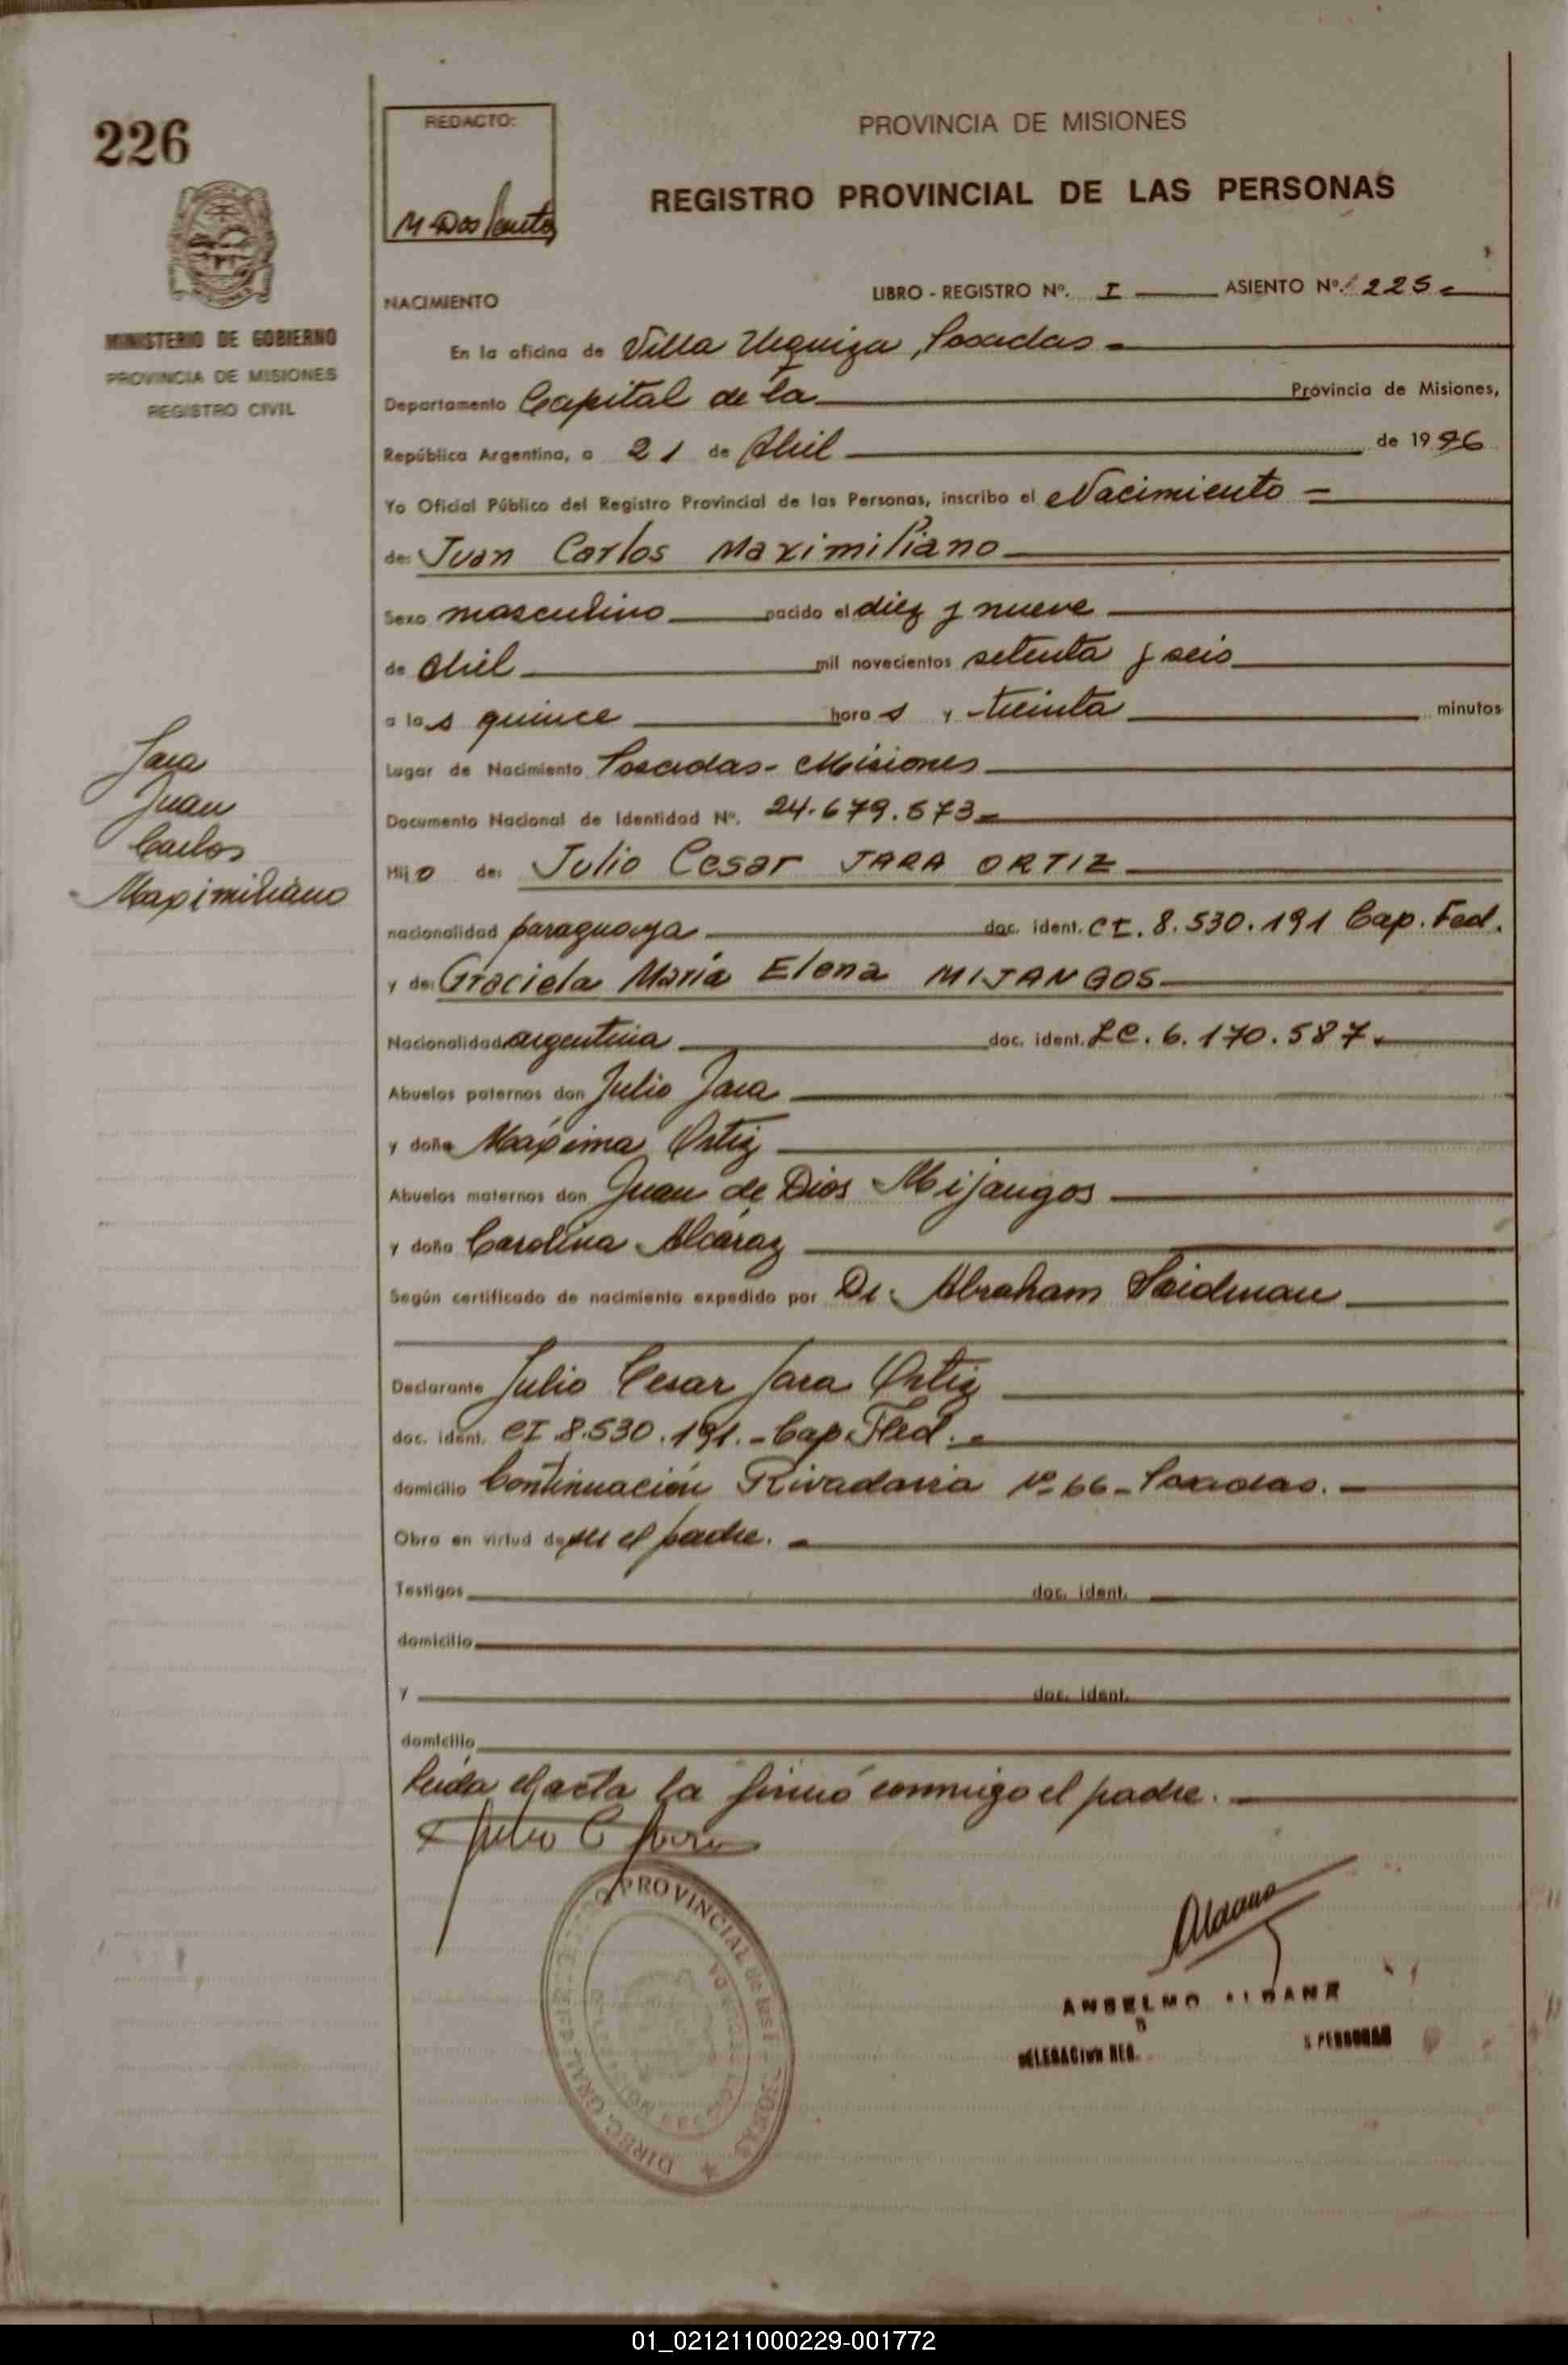 226
REDACTO:
PROVINCIA DE MISIONES
REGISTRO PROVINCIAL DE LAS PERSONAS
MINISTERIO DE GOBIERNO
PROVINCIA DE MISIONES
REGISTRO CIVIL
NACIMIENTO
LIBRO - REGISTRO Nº. I ASIENTO Nº. 225
En la oficina de Villa Urquiza, Posadas
Departamento Capital de la Provincia de Misiones,
República Argentina, a 21 de Abril de 1976
Yo Oficial Público del Registro Provincial de las Personas, inscribo el Nacimiento
de: Juan Carlos Maximiliano
Sexo masculino nacido el diez y nueve
de Abril mil novecientos setenta y seis
a las quince horas y treinta minutos
Lugar de Nacimiento Posadas - Misiones
Documento Nacional de Identidad Nº. 24.679.573
Jara
Juan
Carlos
Maximiliano
Hijo de: Julio Cesar JARA ORTIZ
nacionalidad paraguaya doc. ident. CI. 8.530.191 Cap. Fed.
y de: Graciela María Elena MIJANGOS
Nacionalidad argentina doc. ident. LC. 6.170.587
Abuelos paternos don Julio Jara
y doña Máxima Ortiz
Abuelos maternos don Juan de Dios Mijangos
y doña Carolina Alcaraz
Según certificado de nacimiento expedido por Dr. Abraham Seidman
Declarante Julio Cesar Jara Ortiz
doc. ident. CI 8.530.191. - Cap. Fed.
domicilio Continuación Rivadavia Nº 66 - Posadas.
Obra en virtud de ser el padre.
Testigos doc. ident.
domicilio
y doc. ident.
domicilio
Leída el acta la firmó conmigo el padre.
Julio C Jara
PROVINCIAL de las
DIREC. GRAL
Aldana
ANSELMO ALDANA
DELEGACION REG. S PERSONAS
01_021211000229-001772